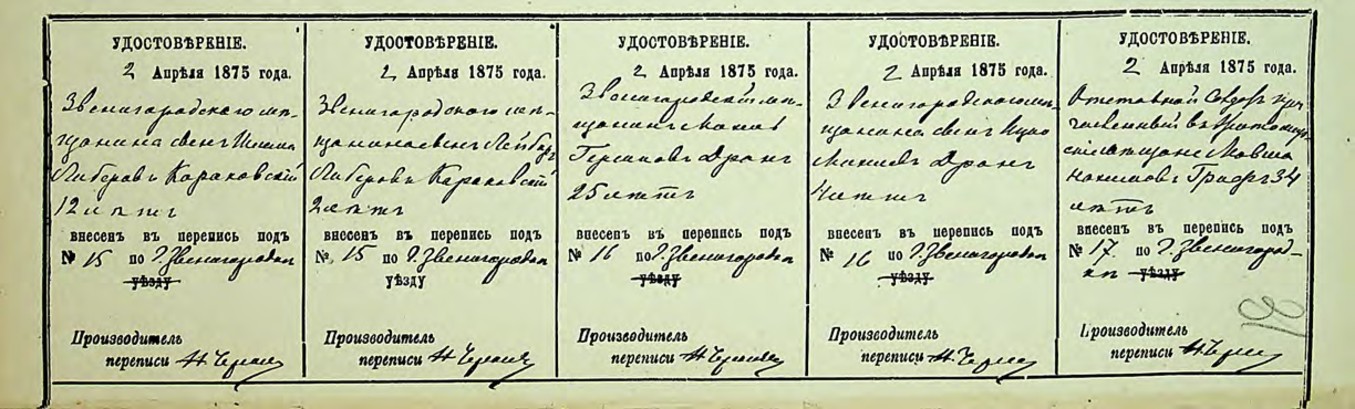 УДОСТОВѢРЕНІЕ.
2 Апрѣля 1875 года.
Звенигородскаго мѣ-
щанина сынъ Шлема
Либеровъ Караковскій
12 лѣтъ
внесенъ въ перепись подъ
№ 15 по г. Звенигородкѣ
уѣзду
Производитель
переписи
УДОСТОВѢРЕНІЕ.
2 Апрѣля 1875 года.
Звенигородскаго мѣ-
щанина сынъ Лейбъ
Либеровъ Караковскій
2 лѣтъ
внесенъ въ перепись подъ
№ 15 по г. Звенигородкѣ
уѣзду
Производитель
переписи
УДОСТОВѢРЕНІЕ.
2 Апрѣля 1875 года.
Звенигородскій мѣ-
щанинъ
Гершковъ Дранъ
25 лѣтъ
внесенъ въ перепись подъ
№ 16 по г. Звенигородкѣ
уѣзду
Производитель
переписи
УДОСТОВѢРЕНІЕ.
2 Апрѣля 1875 года.
Звенигородскаго мѣ-
щанина сынъ Ицко
Дранъ
4 лѣтъ
внесенъ въ перепись подъ
№ 16 по г. Звенигородкѣ
уѣзду
Производитель
переписи
УДОСТОВѢРЕНІЕ.
2 Апрѣля 1875 года.
Отставной при-
численный въ
мѣщане Мовша
34
лѣтъ
внесенъ въ перепись подъ
№ 17 по г. Звенигород-
кѣ уѣзду
Производитель
переписи